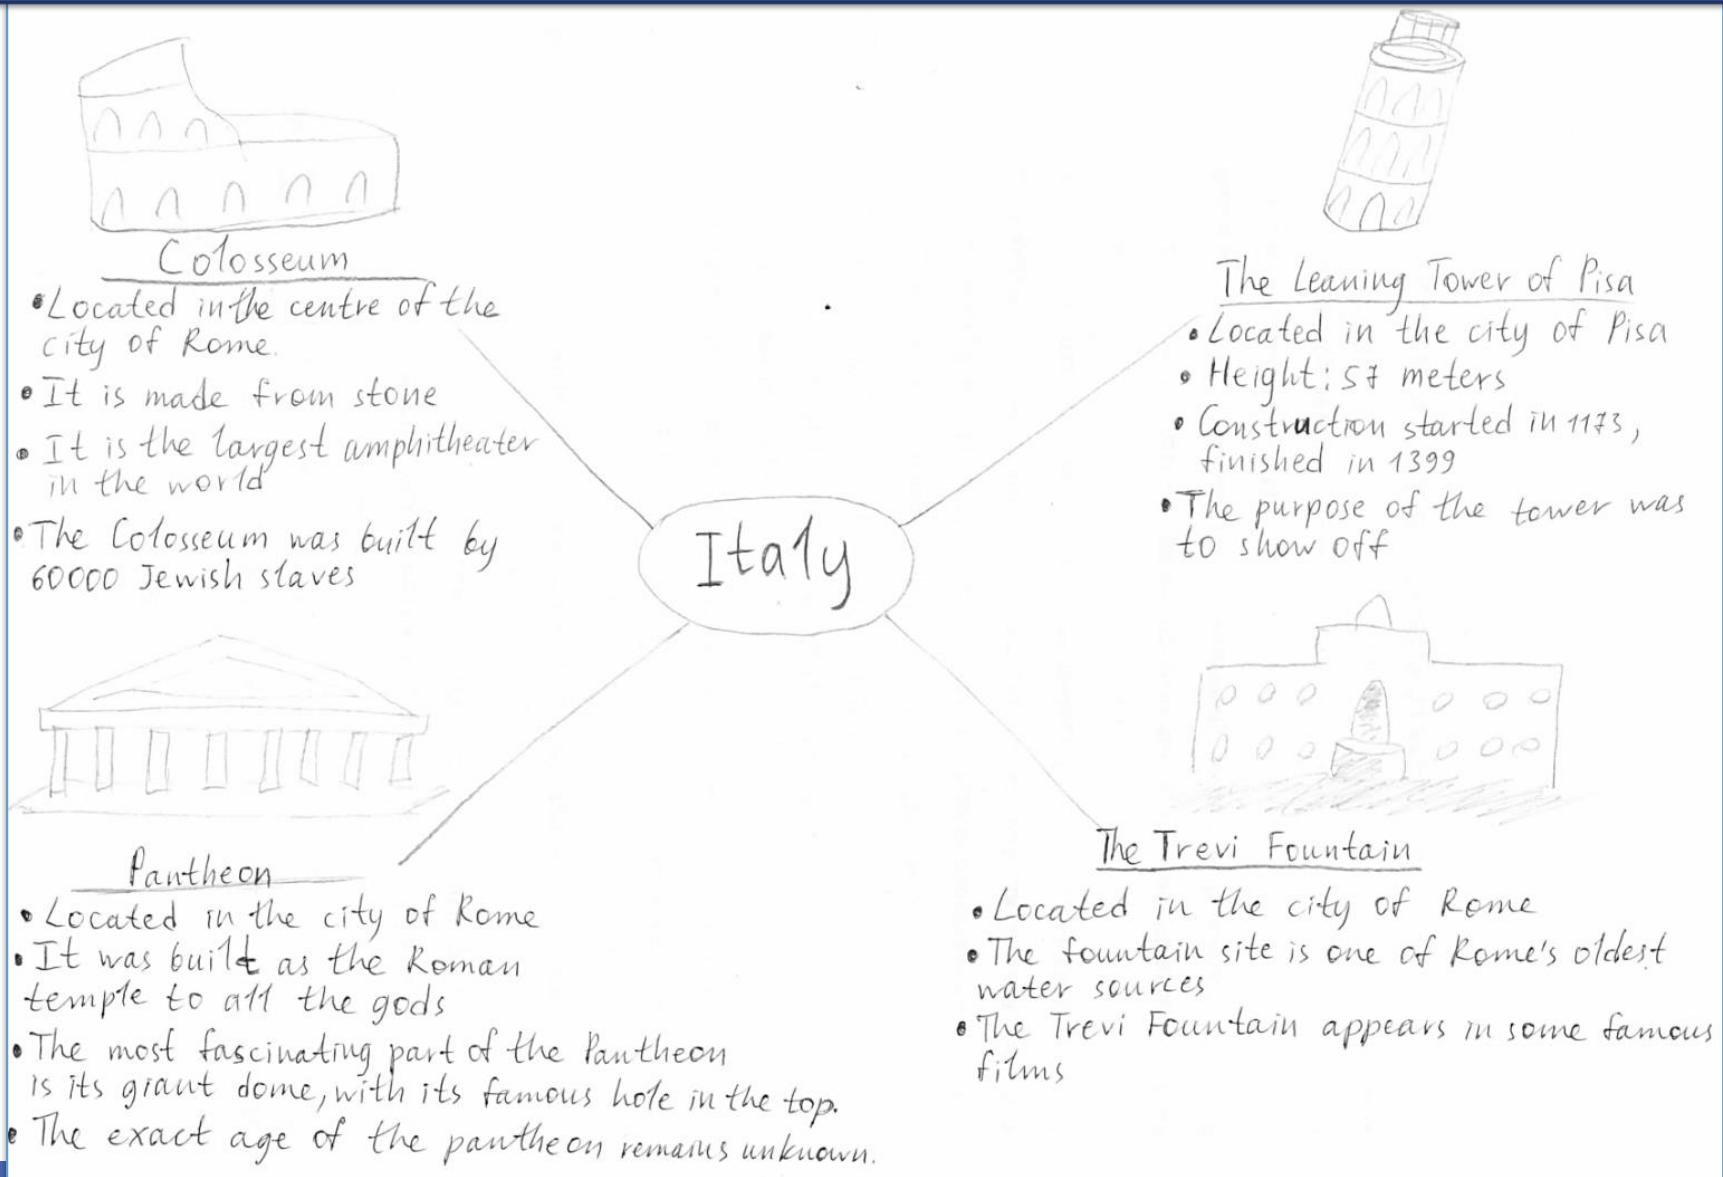 Colosseum
• Located in the centre of the
city of Rome.
• It is made from stone
• It is the largest amphitheater
in the world
• The Colosseum was built by
60000 Jewish slaves
The Leaning Tower of Pisa
• Located in the city of Pisa
• Height: 57 meters
• Construction started in 1173,
finished in 1399
• The purpose of the tower was
to show off
Italy
Pantheon
• Located in the city of Rome
• It was built as the Roman
temple to all the gods
• The most fascinating part of the Pantheon
is its giant dome, with its famous hole in the top.
• The exact age of the pantheon remains unknown.
The Trevi Fountain
• Located in the city of Rome
• The fountain site is one of Rome's oldest
water sources
• The Trevi Fountain appears in some famous
films